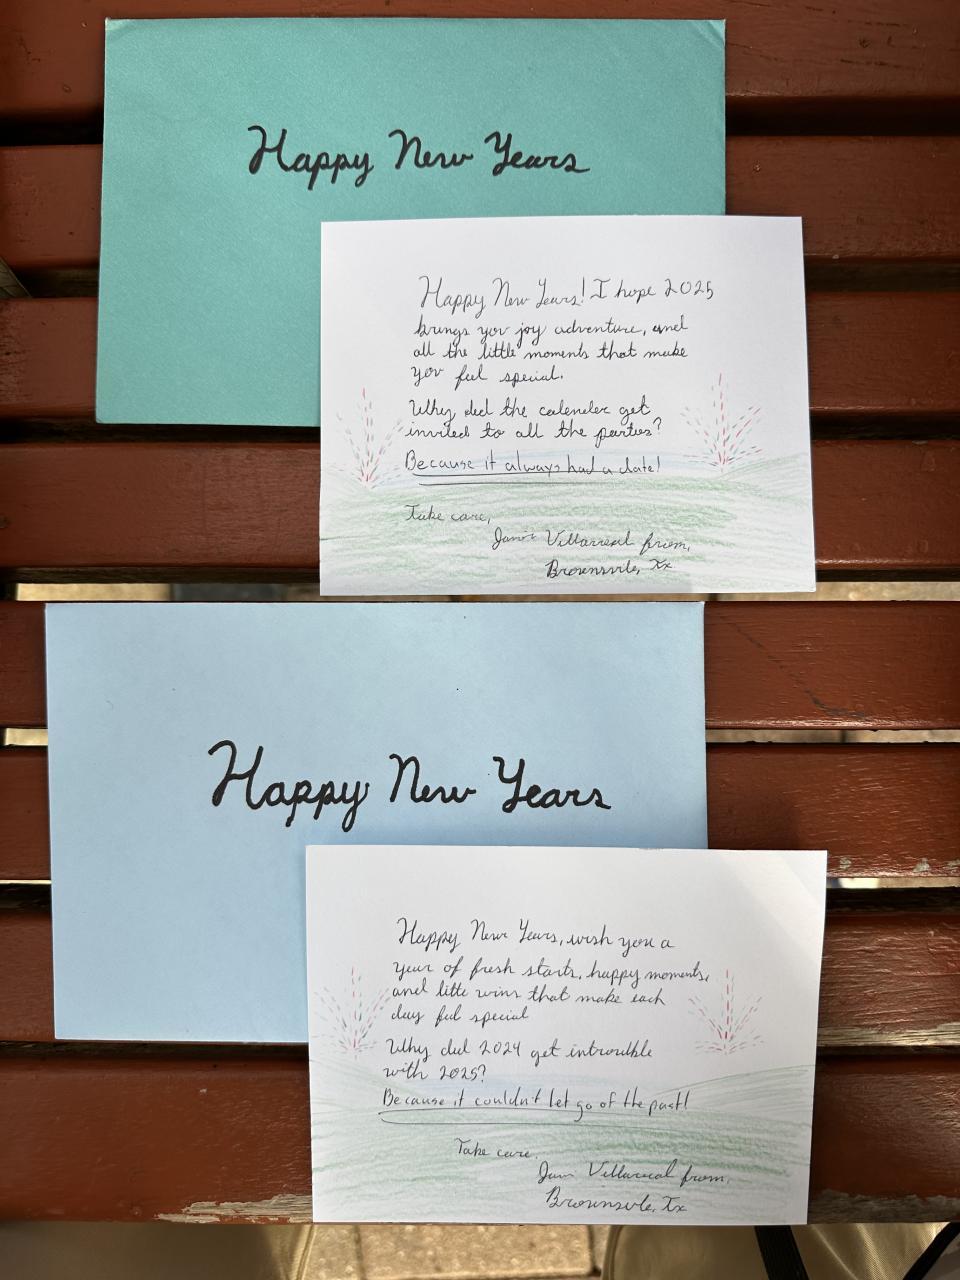 Happy New Years
Happy New Years! I hope 2025
brings you joy adventure, and
all the little moments that make
you feel special.
Why did the calender get
invited to all the parties?
Because it always had a date!
Take care,
Villarreal from,
Brownsville, Tx
Happy New Years
Happy New Years, wish you a
year of fresh starts, happy moments,
and little wins that make each
day feel special
Why did 2024 get introuble
with 2025?
Because it couldn't let go of the past!
Take care.
Villarreal from,
Brownsville, Tx